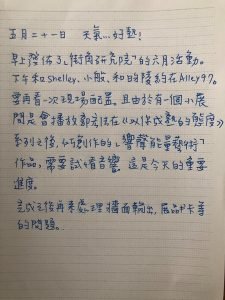 五月二十一日 天氣...好熱!
早上發佈了「街角研究院」的六月活動。
下午和Shelley、小敏、和的陵約在Alley97。
要再看一次現場配置。且由於有一個小展
間是會播放鄭宏在《以你成熱的態度》
系列之後,何創作的「響聲能量藝術」
作品,需要試看音響。這是今天的重要
進度。
完成之後再來處理牆面輸出,展品卡等
的問題。